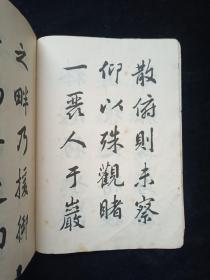 散俯則未察
仰以殊觀睹
一丽人于巖
之畔乃援御